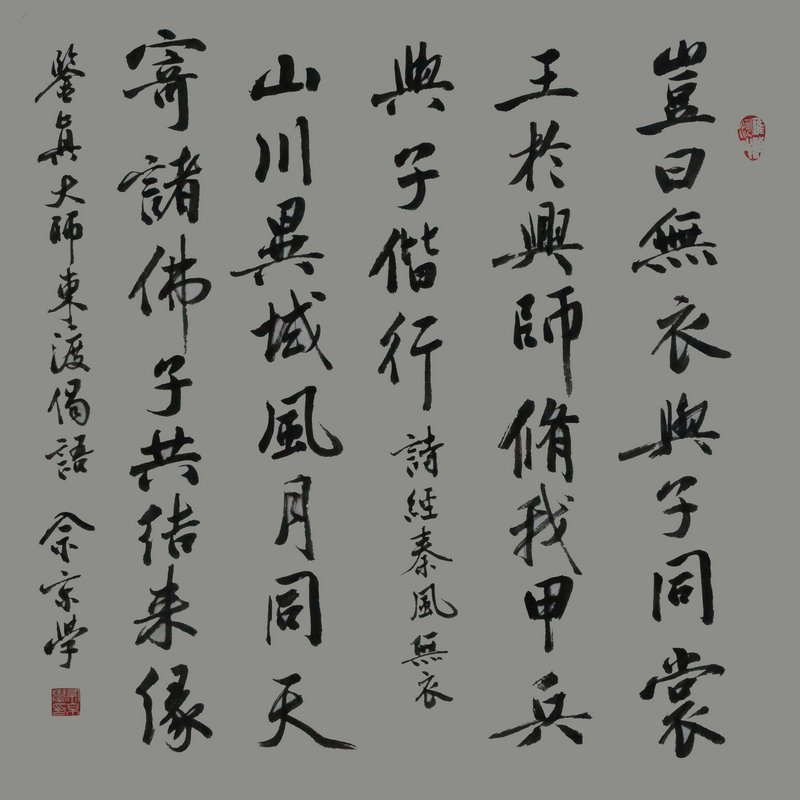 豈曰無衣與子同裳
王於興師脩我甲兵
與子偕行 詩經秦風無衣
山川異域風月同天
寄諸佛子共结来緣
鑒真大師東渡偈語 佘京學